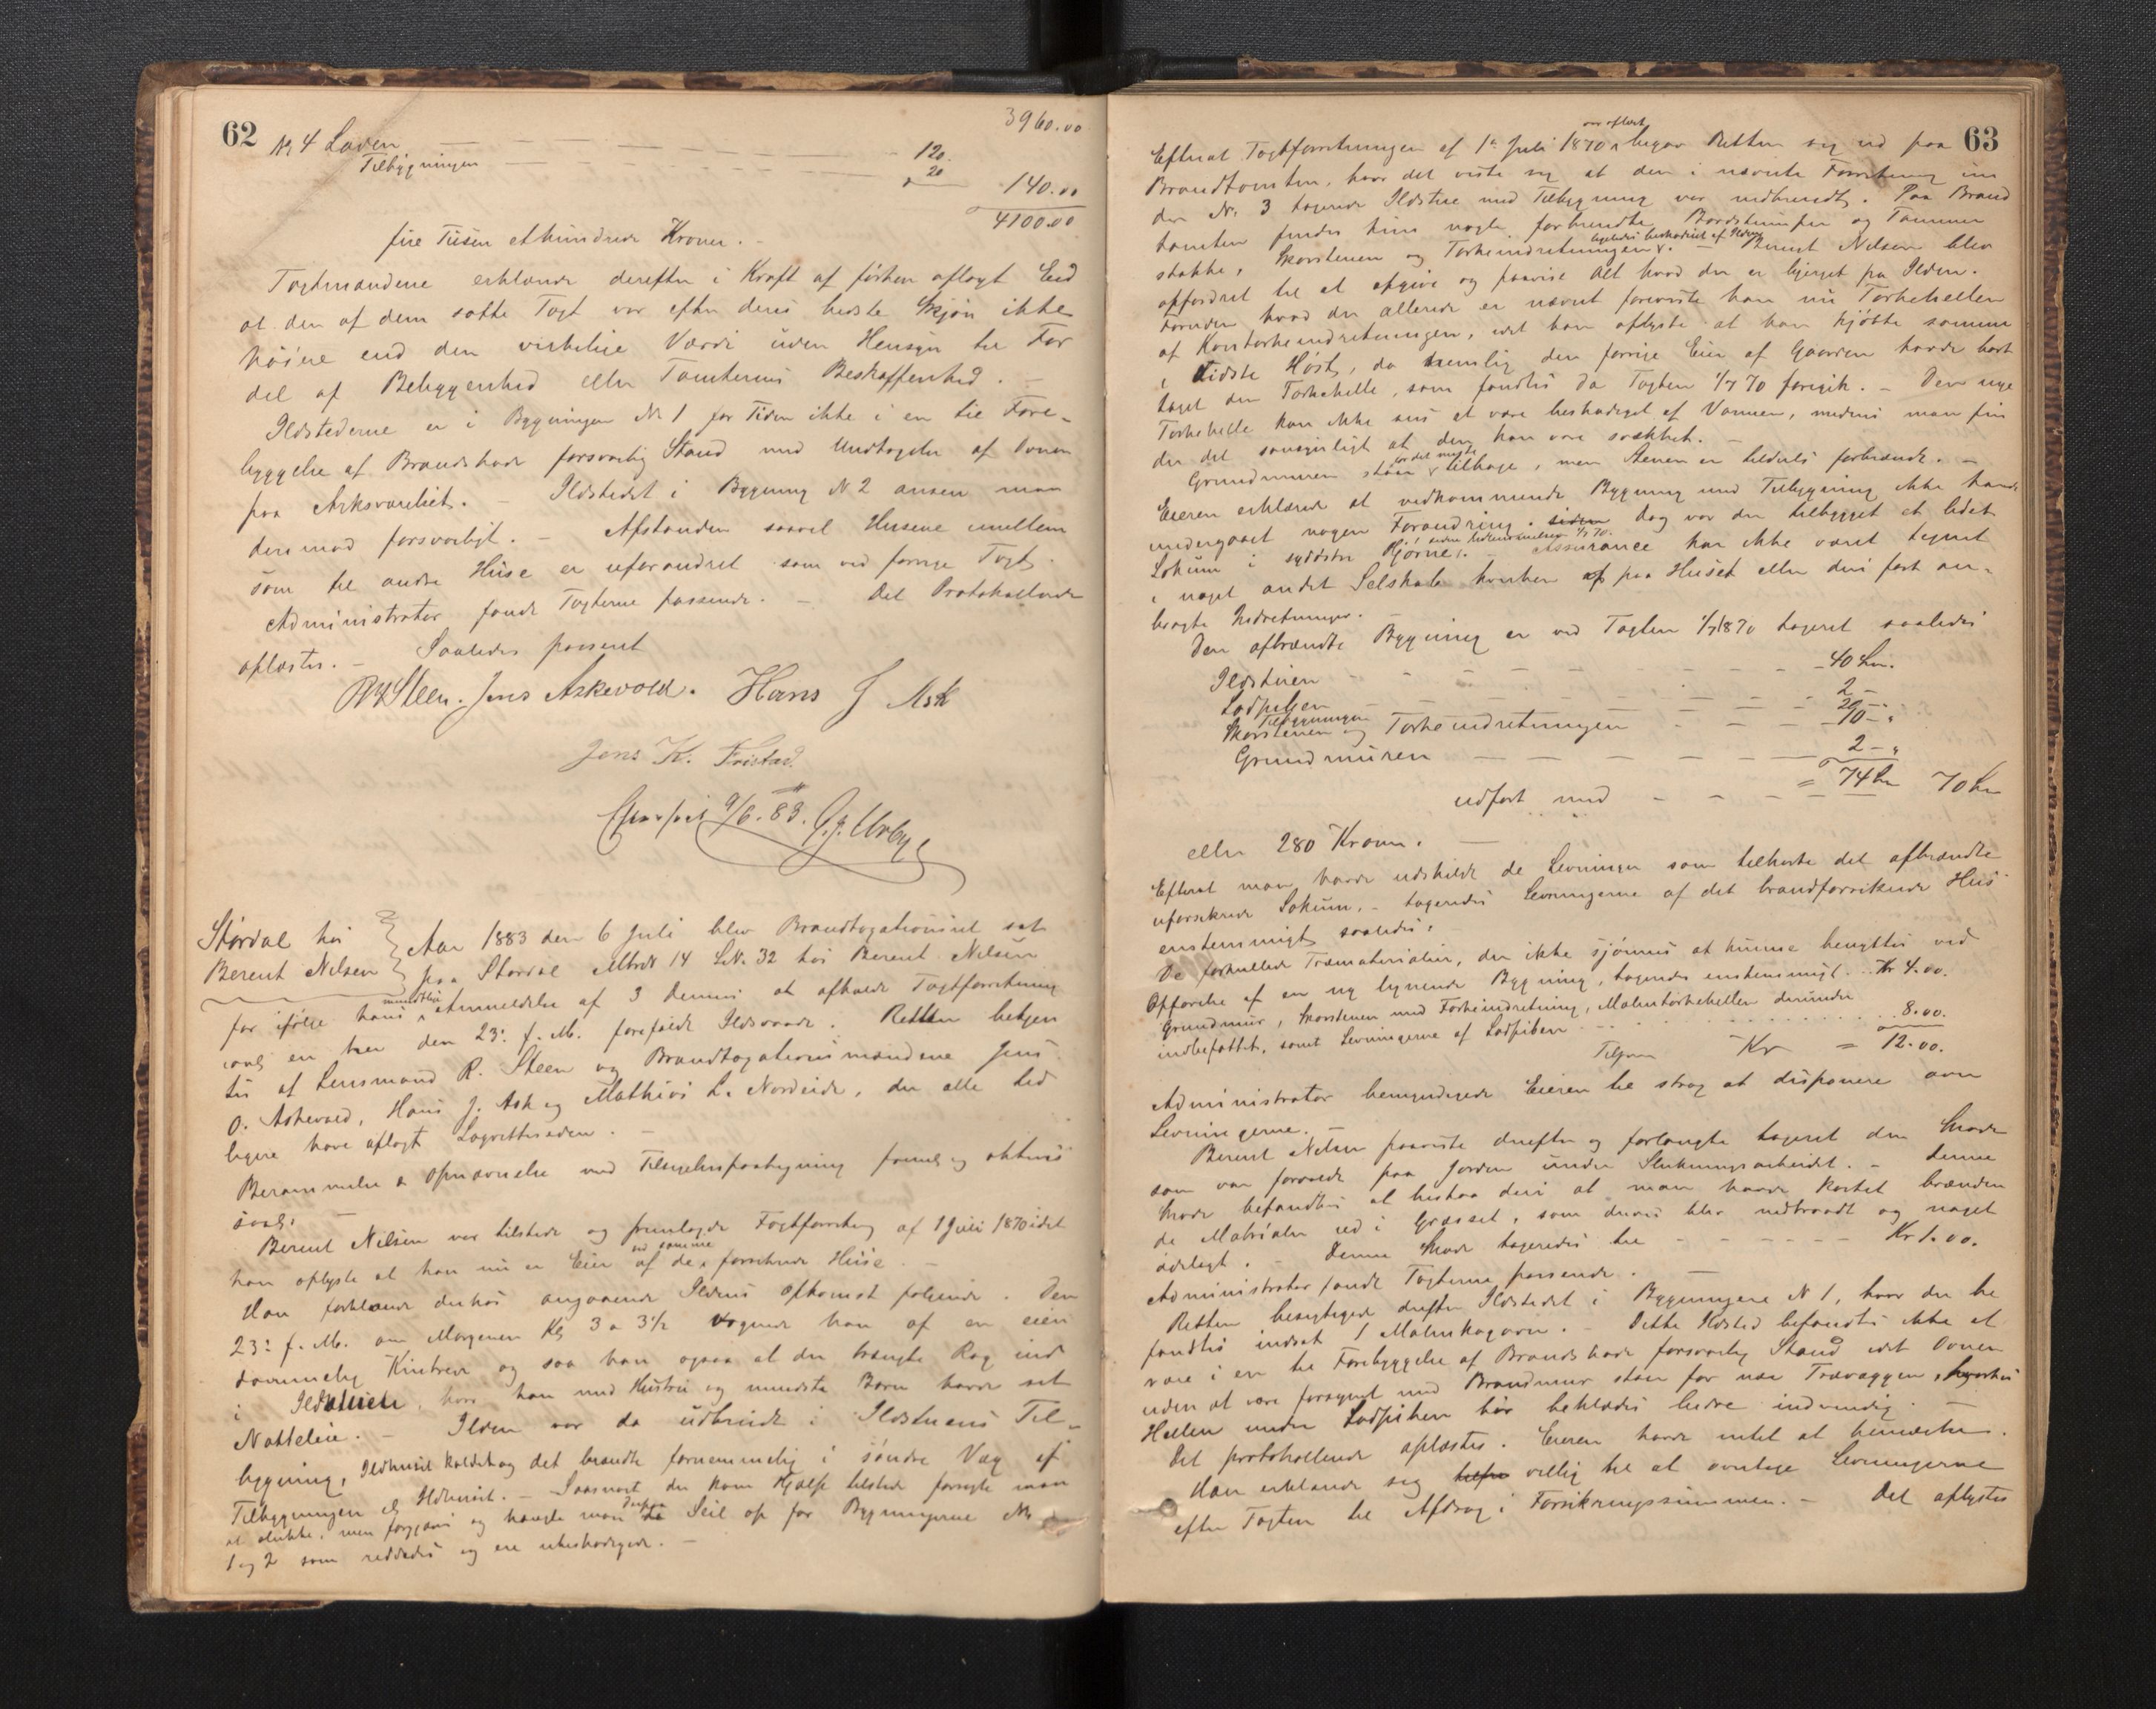 62
3960.00
No 4 Laden — — — 120.
Tilbygningen — — — 20
140.00
4100.00
fire Tusen ethundrede Kroner. —
Taxtmændene erklærede derefter i Kraft af førhen aflagt Eed
at den af dem satte Taxt var efter deres bedste Skjøn ikke
høiere end den virkelige Værdi uden Hensyn til For
del af Beliggenhed eller Tomternes Beskaffenhed. —
Ildstederne er i Bygningen No 1 for Tiden ikke i en til Fore-
byggelse af Brandskade forsvarlig Stand med Undtagelse af Ovnen
paa Arksværelset. — Ildstedet i Bygning N 2 ansees man
derimod forsvarligt. — Afstanden saavel Husene imellem
som til andre Huse er uforandret som ved forrige Taxt.
Administrator fandt Taxterne passende. — Det Protokollerede
oplæstes. — Saaledes passeret
R Steen. Jens Askevold. Hans J Ask
Jens K. Fristad.
9/6. 83.
Stordal hos
Berent Nilsen
Aar 1883 den 6 Juli blev Brandtaxationsret sat
paa Stordal Matr No 14 L.No. 32 hos Berent Nilsen
for ifølge hans mundtlige Anmeldelse af 3 dennes at afholde Taxtforretning
over en her den 23: f. M. forefaldt Ildsvaade. Retten betjen
tes af Lensmand R. Steen og Brandtaxationsmændene Jens
O. Askevold, Hans J. Ask og Mathias L. Nordeide, der alle tid
ligere have aflagt Lagretteseden. —
Berammelse & Opnævnelse med Tilsigelsespaategning fremlagdes
Berent Nilsen var tilstede og fremlagde Taxtforretning af 1 Juli 1870 idet
han oplyste at han nu er Eier af de ved samme forsikrede Huse. —
Han forklarede derhos angaaende Ildens Opkomst følgende. Den
23: f. M. om Morgenen Kl 3 a 3½ vaagnede han af en eien
dommelig Knitren og saa han ogsaa at der trængte Røg ind
i Ildstuen, hvor han med Hustru og mindste Barn havde sit
Natteleie. — Ilden var da udbrudt i Ildstuens Til-
bygning, Ildhuset kaldet og det brændte fornemmelig i søndre Væg af
Tilbygningen Ildhuset. — Saasnart der kom Hjælp tilstede forsøgte man
at slukke, men forgjæves og hængte man derpaa Seil op for Bygningerne No
1 og 2 som reddedes og ere ubeskadigede. —
63
Efterat Taxtforretningen af 1ste Juli 1870 var oplæst begav Retten sig ud paa
Brandtomten, hvor det viste sig at den i nævnte Forretning un
der No. 3 taxerede Ildstue med Tilbygning var nedbrændt. Paa Brand
tomten findes kun nogle forbrændte Bordstumper og Tømmer
stokke, Skorstenen og Tørkeindretningen ligeledes beskadiget af Ilden. — Berent Nilsen blev
opfordret til at opgive og paavise Alt hvad der er bjerget fra Ilden.
Foruden hvad der allerede er nævnt foreviste han nu Tørkehellen
af Korntørkeindretningen, idet han oplyste at han kjøbte samme
i sidste Høst, da nemlig den forrige Eier af Gaarden havde bort
taget den Tørkehelle, som fandtes da Taxten 1/7 70 foregik. — Den nye
Tørkehelle kan ikke sees at være beskadiget af Varmen, medens man fin
der det sandsynligt at den kan være svækket. —
Grundmuren staar for det meste tilbage, men Stenen er tildels forbrændt. —
Eieren erklærede at vedkommende Bygning med Tilbygning ikke havde
undergaaet nogen Forandring siden 1/7 70. dog var der tilbygget et lidet
Lokum i sydøstre Hjørne. — Assurance har ikke været tegnet
i noget andet Selskab hverken paa Huset eller dens fast an-
bragte Indretninger.
Den afbrændte Bygning er ved Taxten 1/7 1870 taxeret saaledes
Ildstuen — — — 40 Spd.
Ladpiben — — — 2 –
Tilbygningen — — — 20 –
Skorstenen og Tørkeindretningen — — — 10 – „
Grundmuren — — — 2 – „
= 74 Spd
udført med — — — 70 Spd
eller 280 Kroner. —
Efterat man havde udskildt de Levninger som tilhørte det afbrændte
uforsikrede Lokum, — taxeredes Levningerne af det brandforsikrede Hus
enstemmigt saaledes:
De forkullede Træmaterialier, der ikke skjønnes at kunne benyttes ved
Opførelse af en ny lignende Bygning, taxeredes enstemmigt Kr 4.00.
Grundmur, Skorstenen med Tørkeindretning, Malmtørkehellen derunder
indbefattet, samt Levningerne af Ladpiben 8.00.
Tilsammen Kr = 12.00.
Administrator bemyndigede Eieren til strax at disponere over
Levningerne. —
Berent Nilsen paaviste derefter og forlangte taxeret den Skade
som var foraarsaget paa Jorden under Slukningsarbeidet. — Denne
Skade befandtes at bestaa deri at man havde kastet brænden
de Materialier ud i Græsset, som derved blev nedtraadt og noget
ødelagt. — Denne Skade taxeredes til — — — Kr 1.00.
Administrator fandt Taxterne passende. —
Retten besigtigede derefter Ildstedet i Bygningen N 1, hvor der be
fandtes indsat 1 Malmkogovn. — Dette Ildsted befandtes ikke at
være i en til Forebyggelse af Brandskade forsvarlig Stand idet Ovnen
uden at være forsynet med Brandmur staar for nær Trævæggen, hvorhos
Hellen under Ladpiben bør beklædes bedre indvendig.
Det protokollerede oplæstes. Eieren havde intet at bemærke.
Han erklærede sig villig til at overtage Levningerne
efter Taxten til Afdrag i Forsikringssummen. — Det oplystes